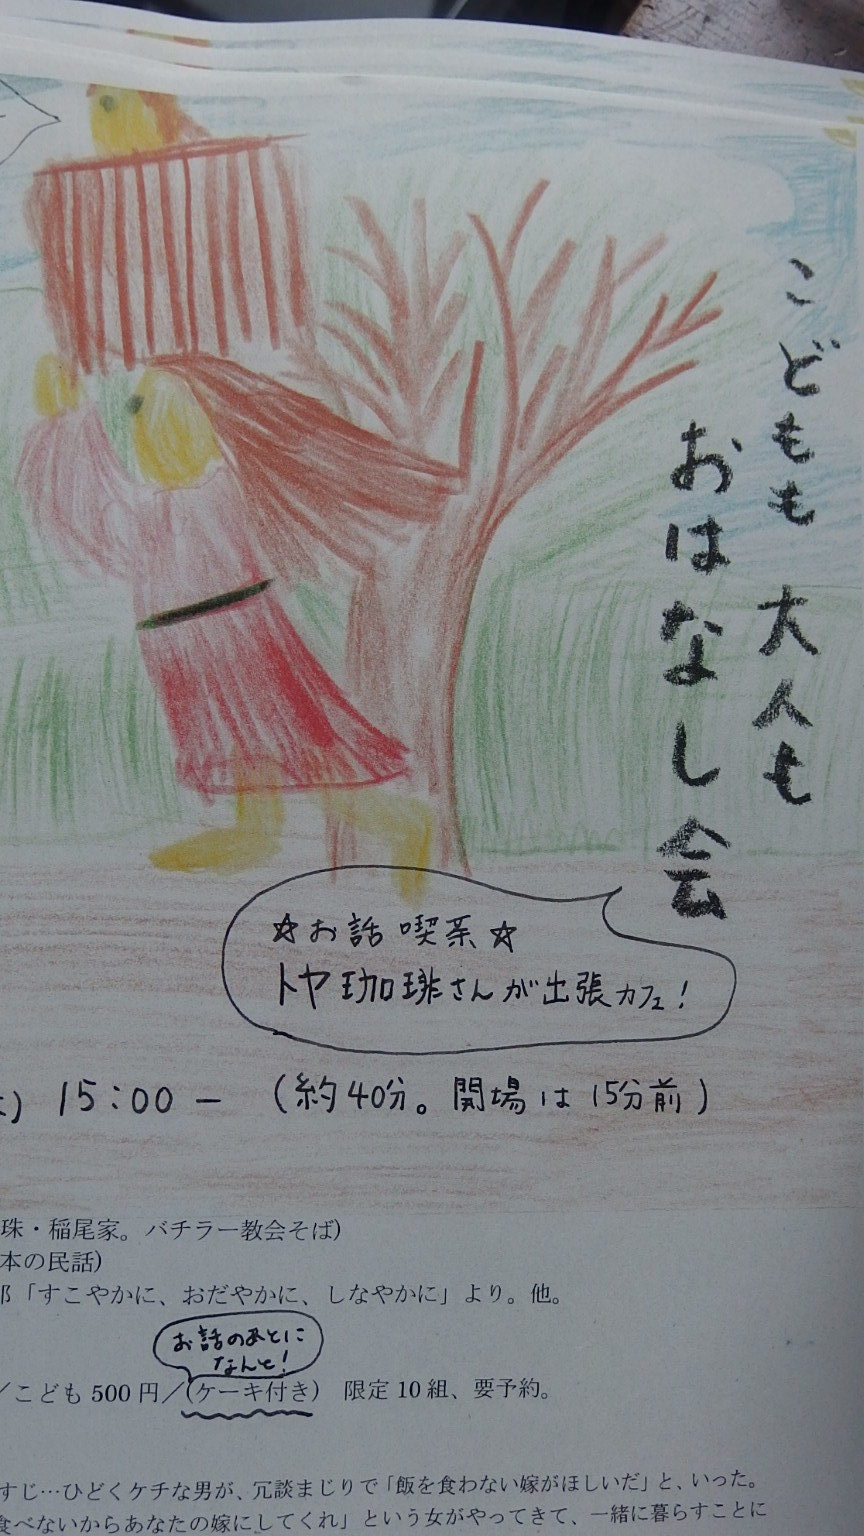 こどもも大人も
おはなし会
☆お話喫茶☆
トヤ珈琲さんが出張カフェ!
) 15:00 - (約40分。開場は15分前)
珠・稲尾家。バチラー教会そば)
本の民話)
郎「すこやかに、おだやかに、しなやかに」より。他。
お話のあとに
なんと!
/こども 500 円/(ケーキ付き) 限定 10 組、要予約。
すじ…ひどくケチな男が、冗談まじりで「飯を食わない嫁がほしいだ」と、いった。
食べないからあなたの嫁にしてくれ」という女がやってきて、一緒に暮らすことに